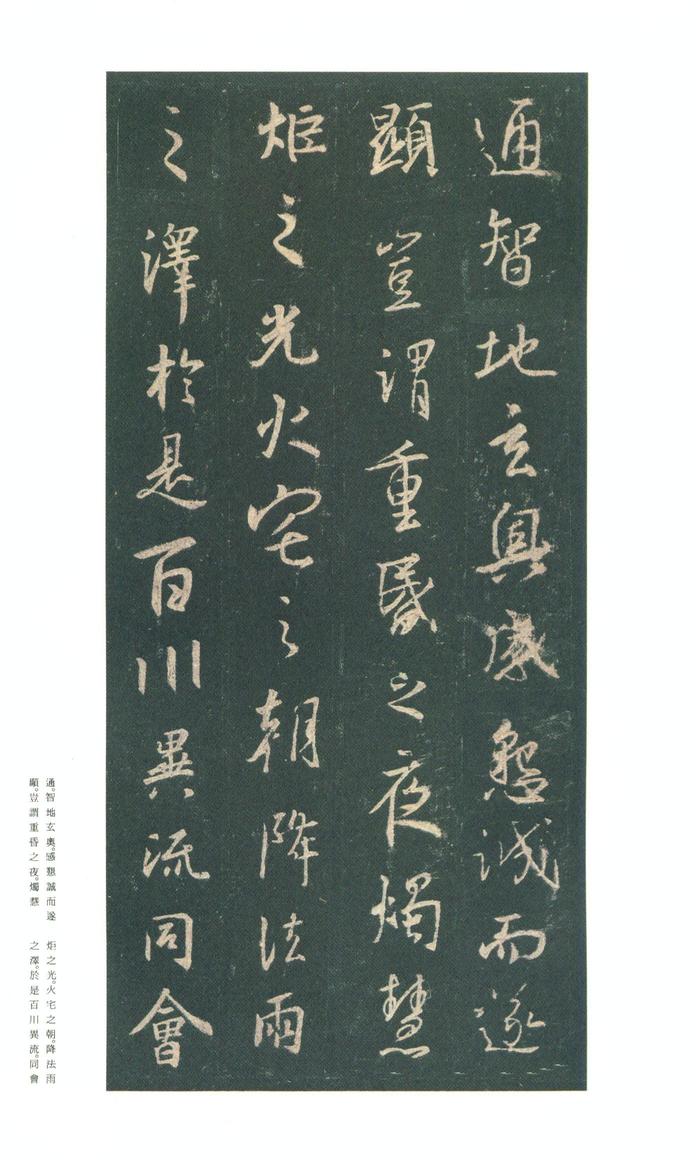 通智地玄奥感懇誠而遂
顯豈謂重昏之夜燭慧
炬之光火宅之朝降法雨
之澤於是百川異流同會
通。智地玄奧。感懇誠而遂
顯。豈謂重昏之夜。燭慧
炬之光。火宅之朝。降法雨
之澤。於是百川異流。同會